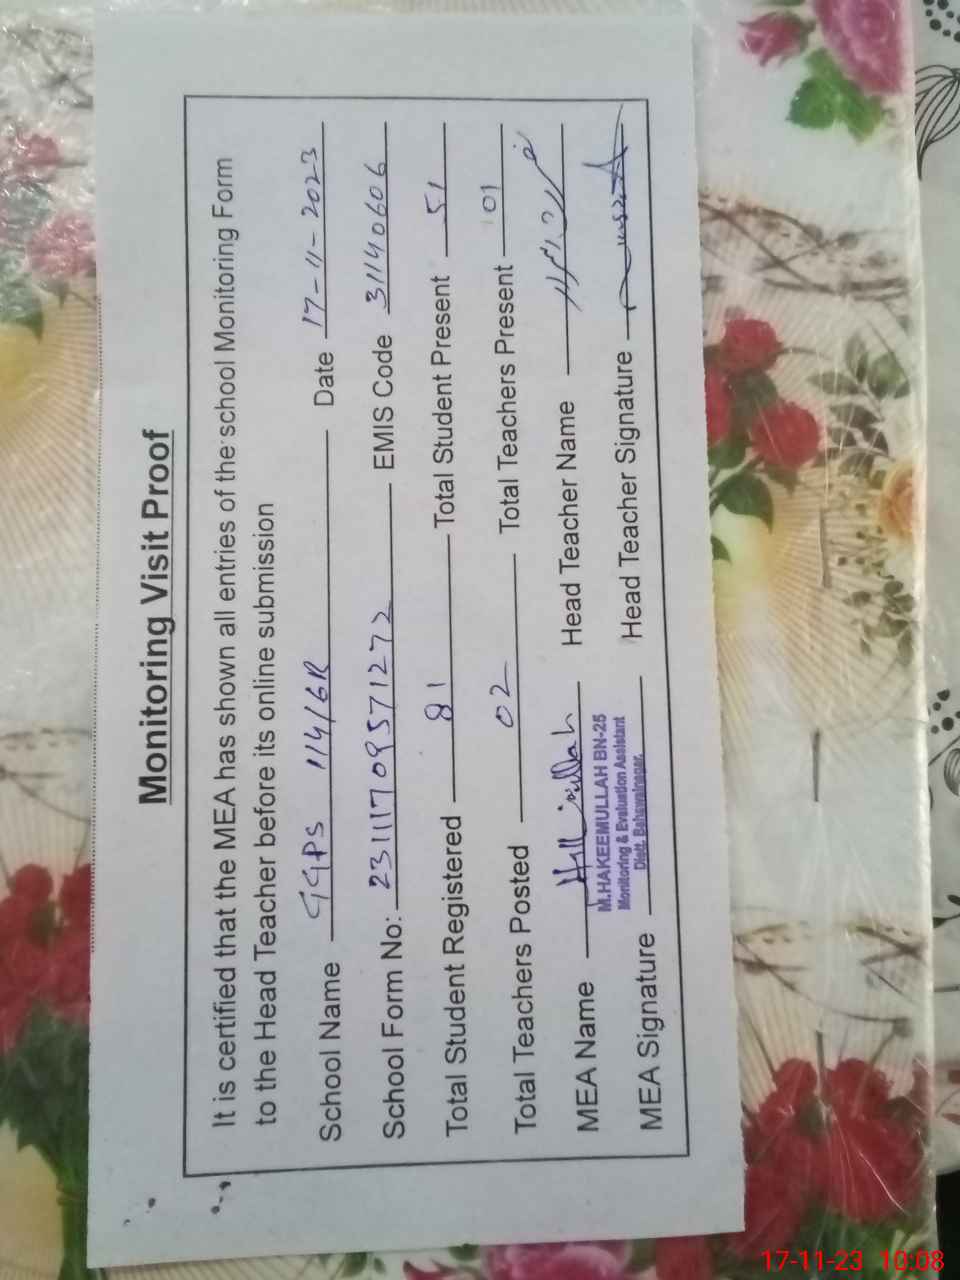 Monitoring Visit Proof
It is certified that the MEA has shown all entries of the school Monitoring Form
to the Head Teacher before its online submission
School Name GGPS 114/6R Date 17-11-2023
School Form No: 23111709571272 EMIS Code 31140606
Total Student Registered 81 Total Student Present 51
Total Teachers Posted 02 Total Teachers Present 01
MEA Name Head Teacher Name
M.HAKEEMULLAH BN-25
Monitoring & Evaluation Assistant
Distt. Bahawalnagar.
MEA Signature Head Teacher Signature
17-11-23 10:08